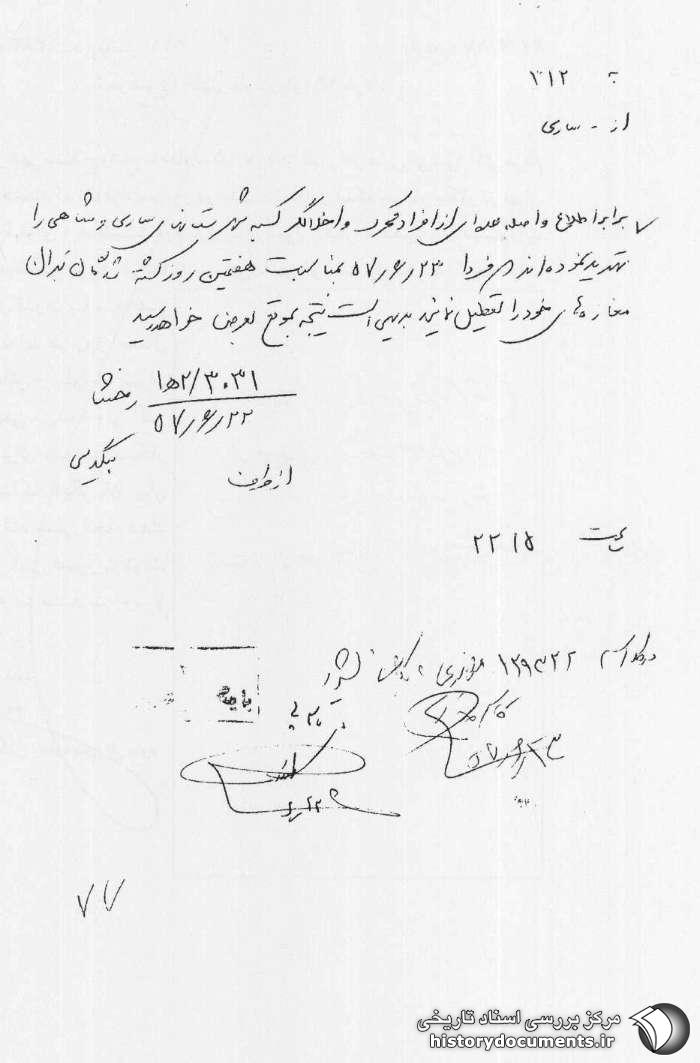 به ۳۱۲
از - ساری
برابر اطلاع واصله عده‌ای از افراد محرک و اخلالگر کسبه شهرستان‌های ساری و شاهی را
تهدید نموده‌اند که فردا ۵۷/۶/۲۳ بمناسبت هفتمین روز کشته شدگان تهران
مغازه‌های خود را تعطیل نمایند بدیهی است نتیجه بموقع بعرض خواهد رسید
۱ﻫ۲/۳۰۳۱
۵۷/۶/۲۲
از طرف
بیگدلی
ساعت ۲۲۱۵
بایگانی
۵۷/۶/۲۳
۷۷
مرکز بررسی اسناد تاریخی
historydocuments.ir